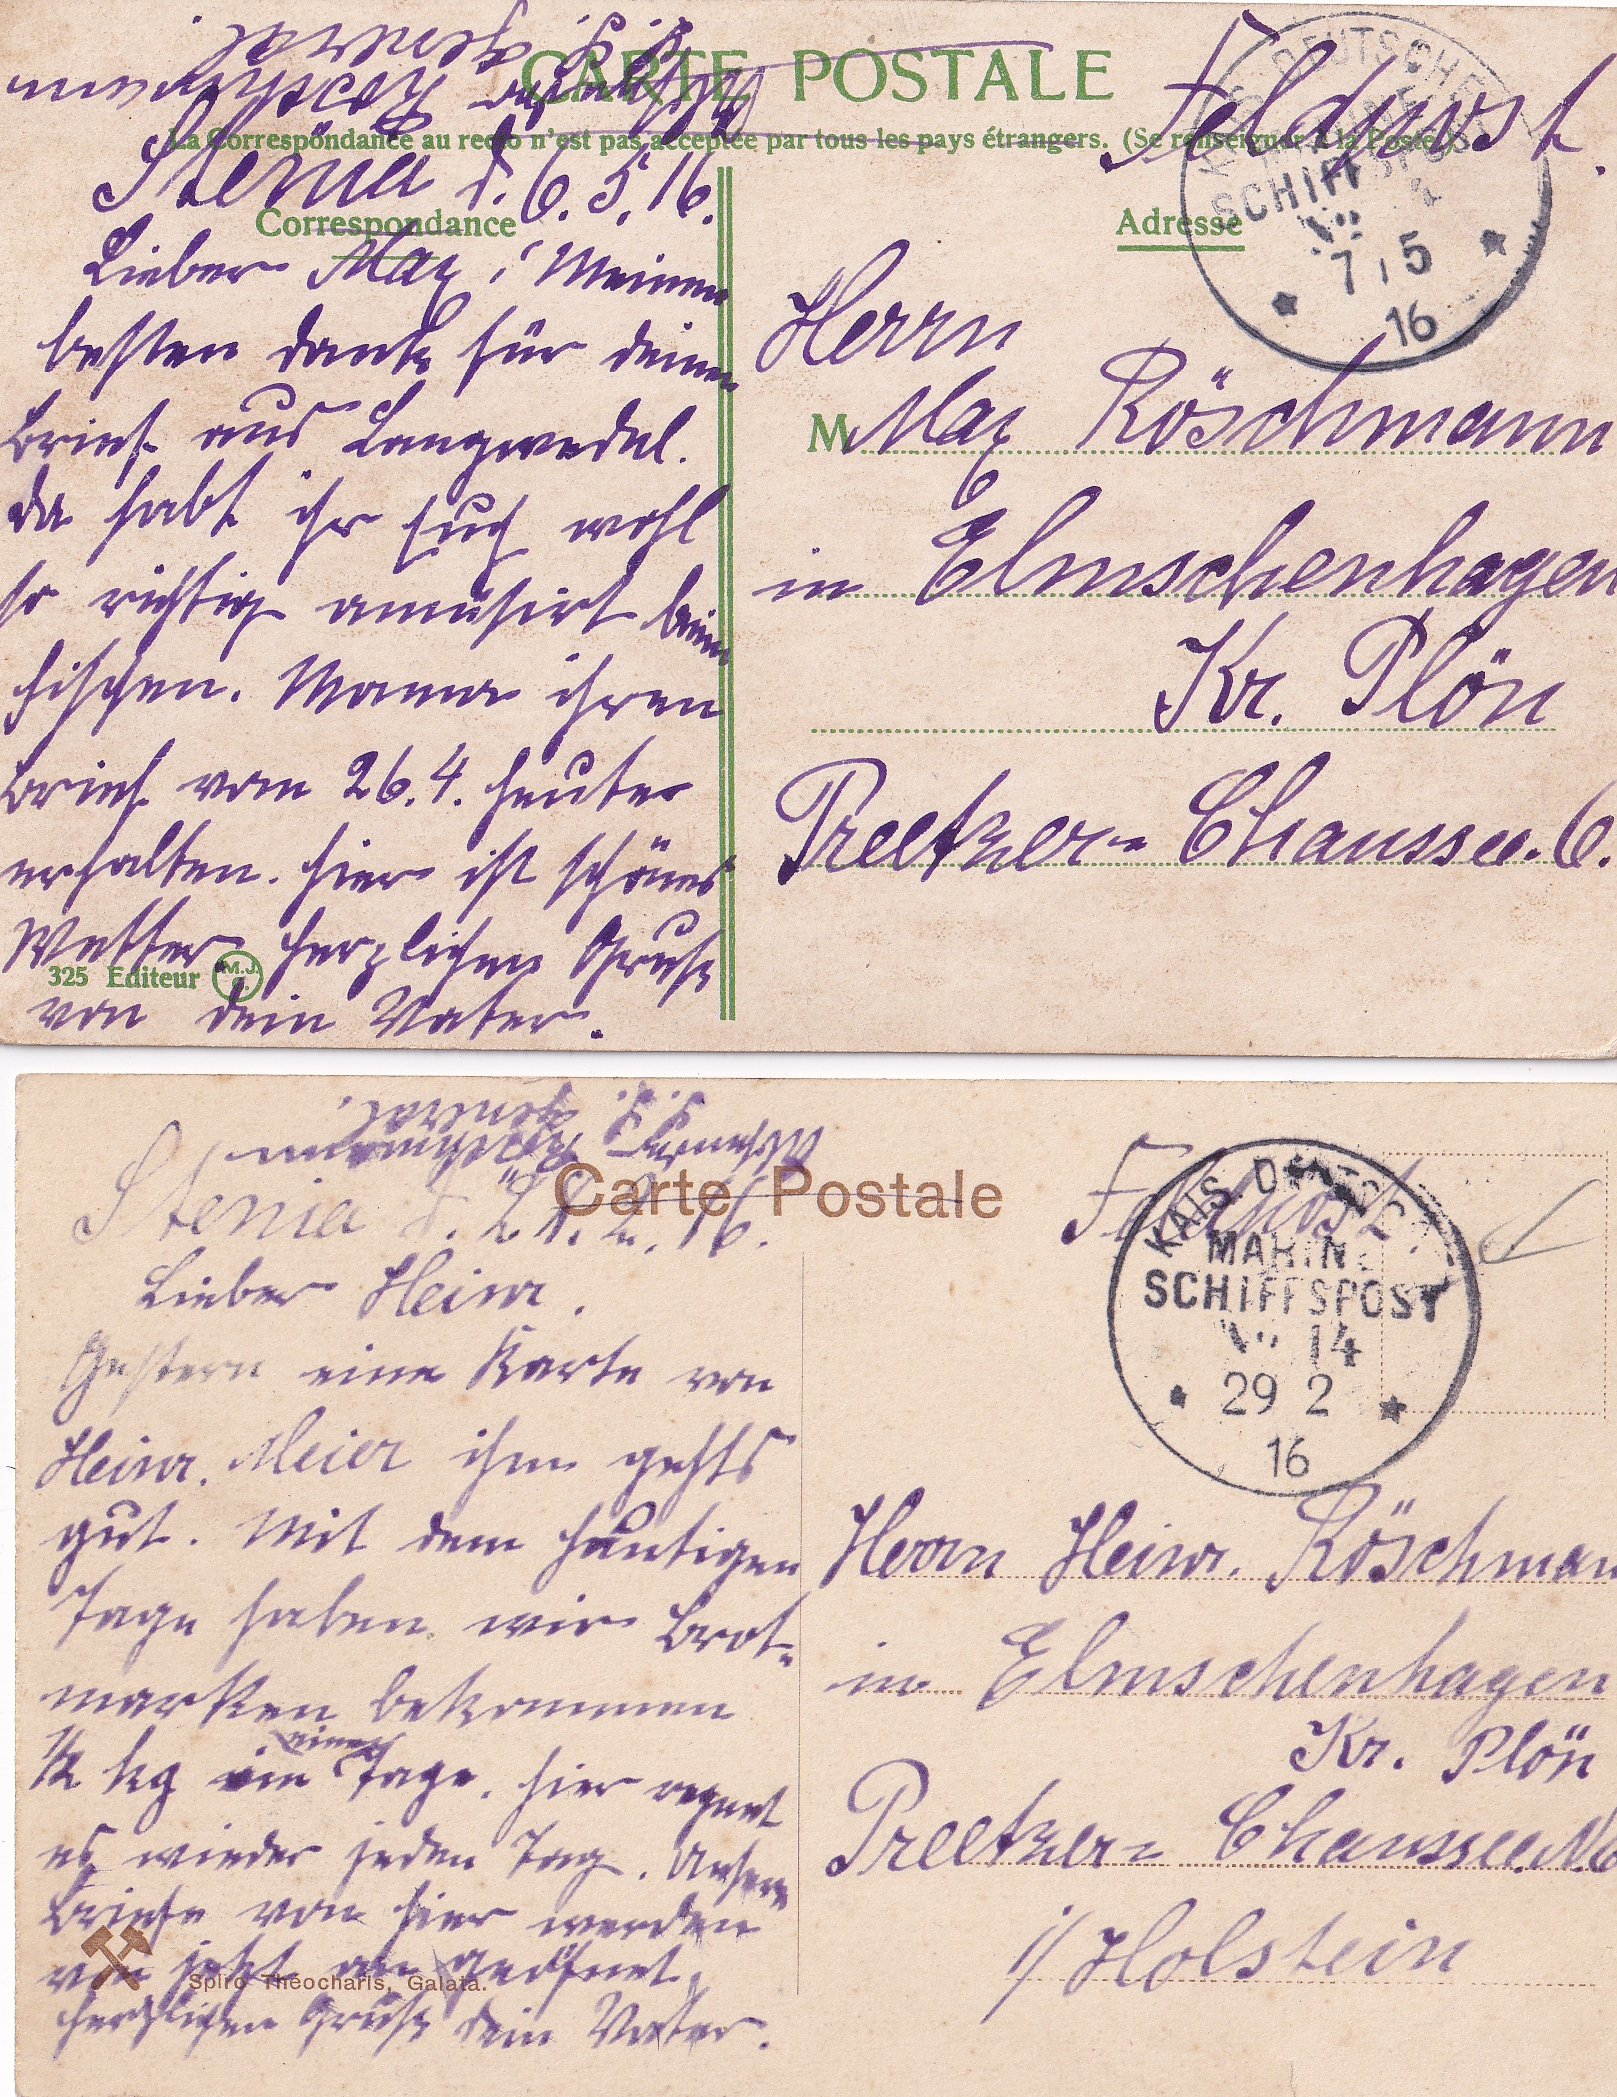 CARTE POSTALE
La Correspondance au recto n'est pas acceptée par tous les pays étrangers. (Se renseigner à la Poste)
Correspondance
Adresse
Feldpost.
DEUTSCHE
SCHIFFSPOST
7 5
16
Röschmann
S.S. General
Stenia d. 6. 5. 16.
Lieber Max! Meinen
besten Dank für deinen
Brief aus Langwedel.
Da habt ihr Euch wohl
so richtig amüsirt beim
fischen. Mama ihren
Brief vom 26.4. heute
erhalten. Hier ist schönes
Wetter herzlichen Gruß
von dein Vater.
325 Editeur M.J.C.
Herrn
M Max Röschmann
in Elmschenhagen
Kr. Plön
Preetzer=Chaussee. 6.
Carte Postale
Feldpost.
KAIS. DEUTSCHE
MARINE
SCHIFFSPOST
No 14
29 2
16
Röschmann
S.S. General.
Stenia d. 28. 2. 16.
Lieber Heinr.
Gestern eine Karte von
Heinr. Meier ihm gehts
gut. Mit dem heutigen
Tage haben wir Brot-
marken bekommen
1/2 kg in einen Tage. Hier regnet
es wieder jeden Tag. Unsere
Briefe von hier werden
von jetzt an geöfnet.
herzlichen Gruß dein Vater.
Spiro Théocharis, Galata.
Herrn Heinr. Röschman
in Elmschenhagen
Kr. Plön
Preetzer=Chaussee. N. 6
i/ Holstein